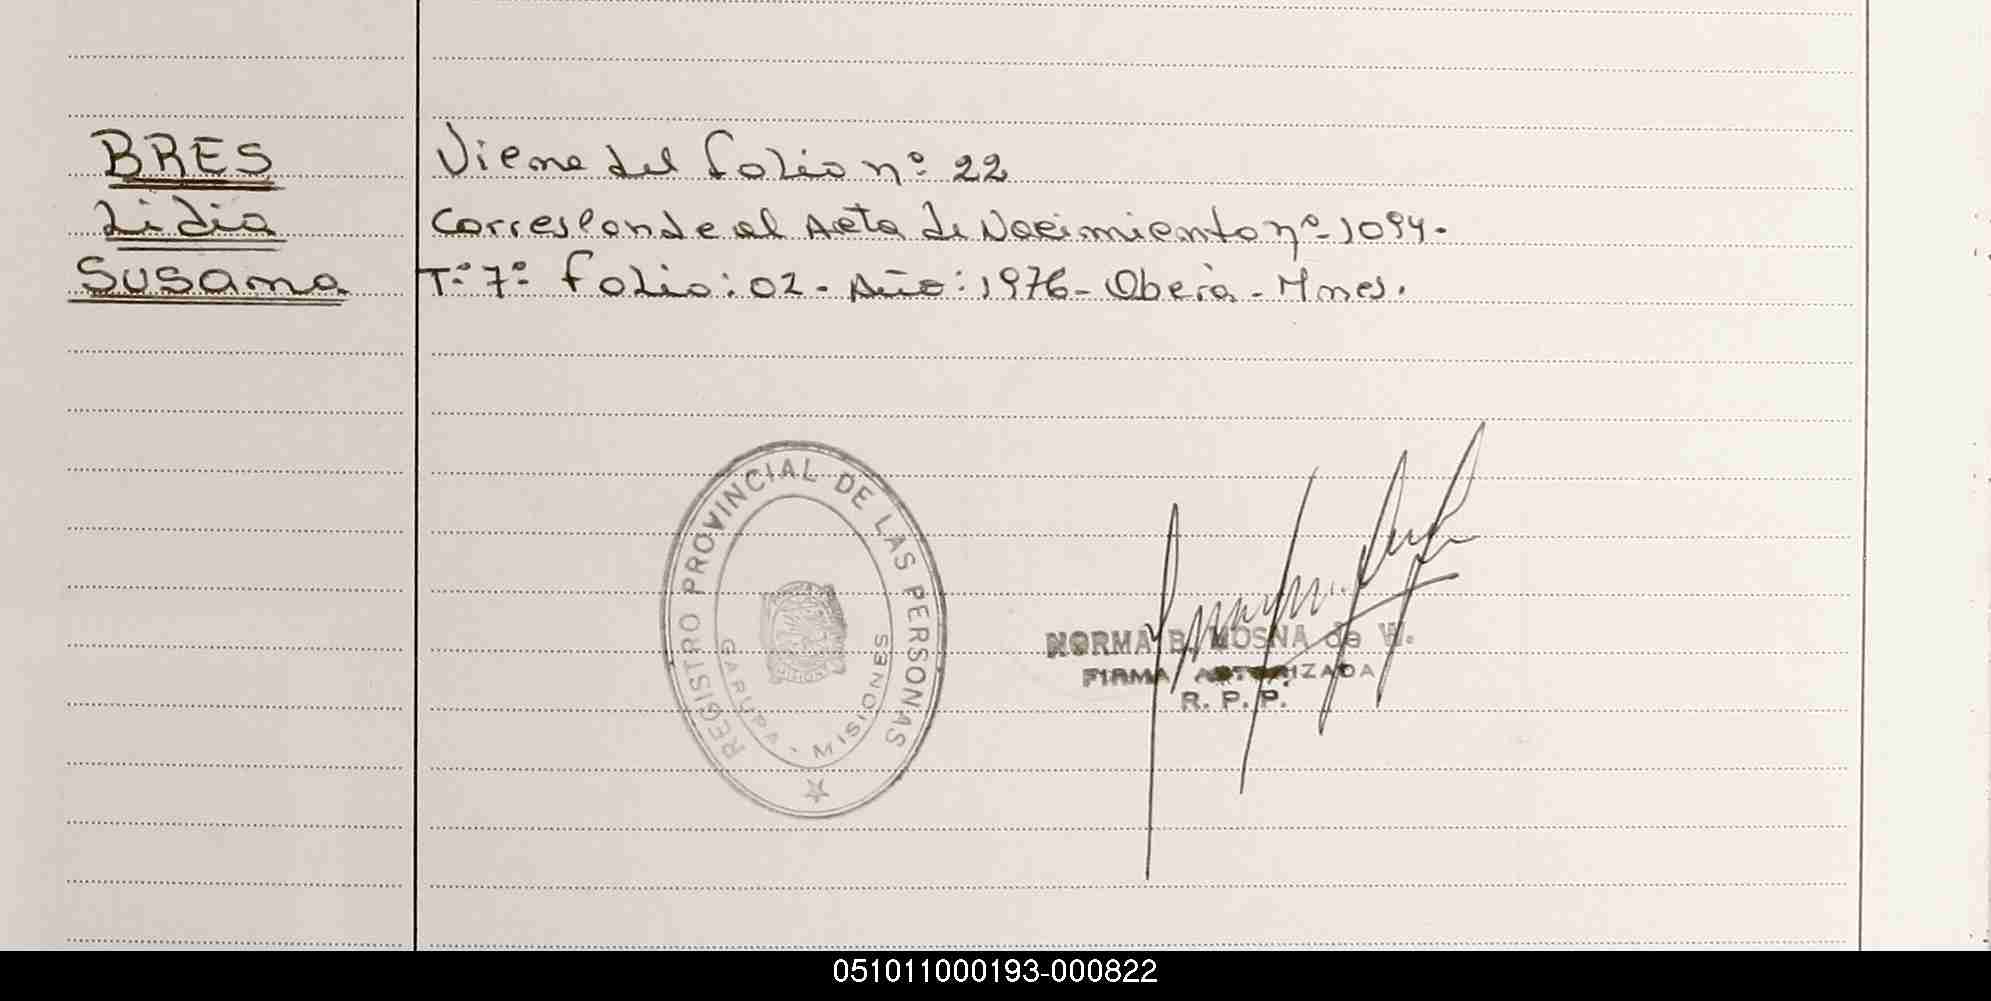 BRES
Lidia
Susana
Viene del folio nº 22
Corresponde al Acta de Nacimiento nº 1094.
Tº 7º folio: 02. Año: 1976 - Oberá - Mnes.
REGISTRO PROVINCIAL DE LAS PERSONAS
GARUPA - MISIONES
NORMA B. MOSNA de V.
FIRMA AUTORIZADA
R. P. P.
051011000193-000822